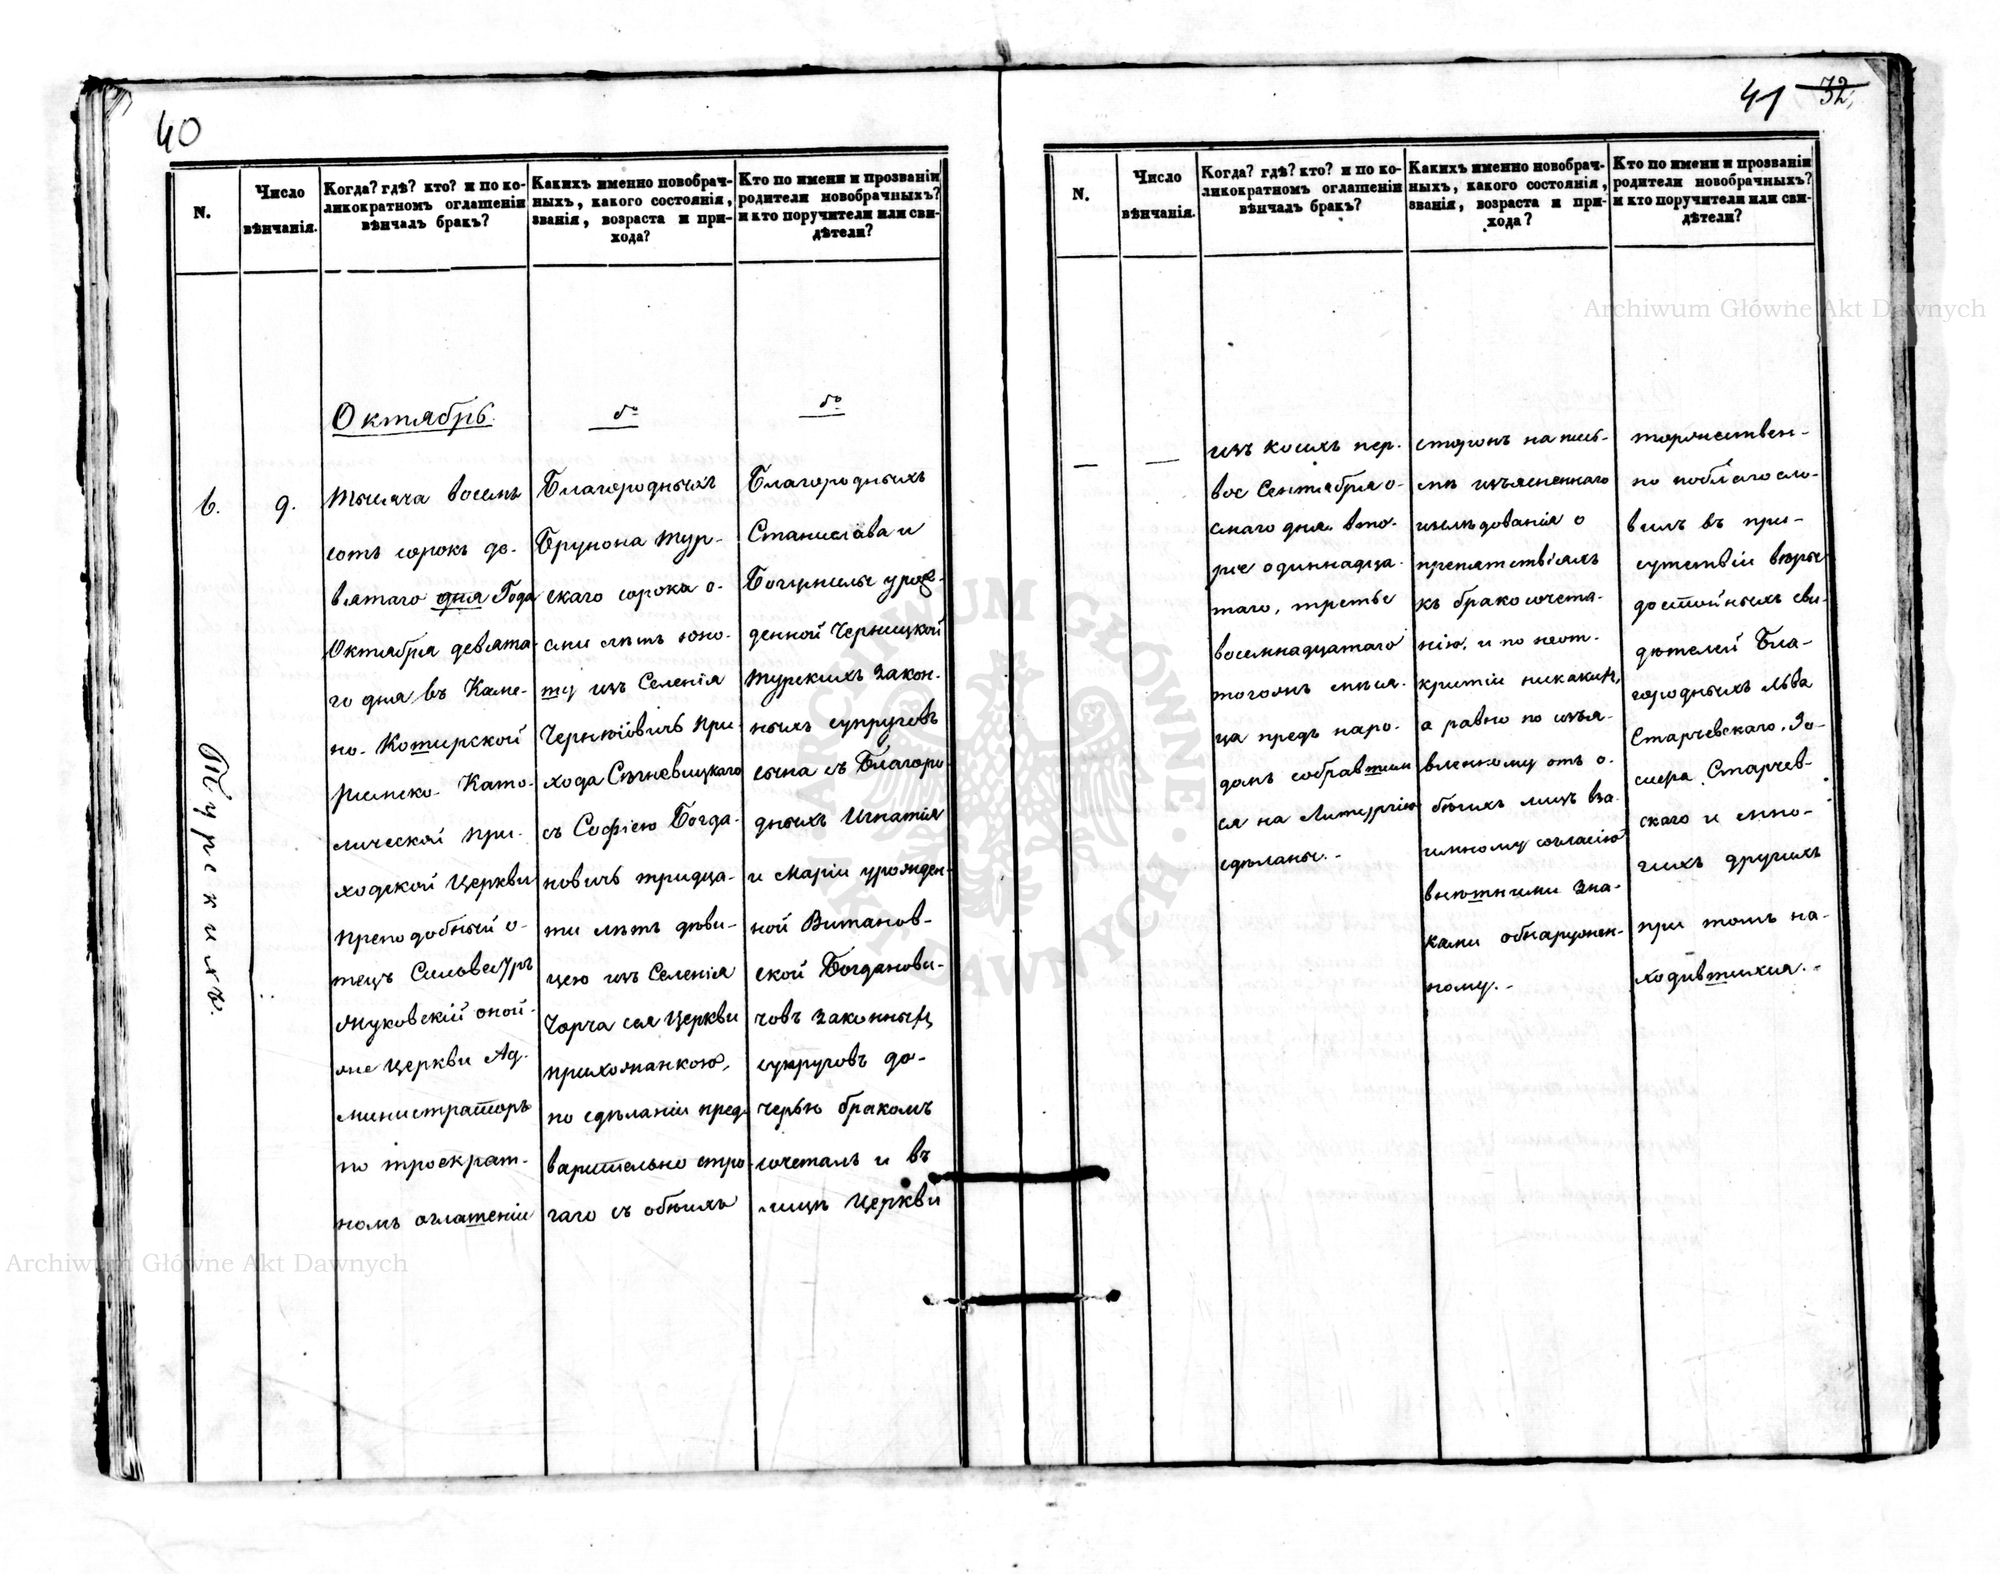 40
N.
Число
вѣнчанія.
Когда? гдѣ? кто? и по ко-
ликократномъ оглашеніи
вѣнчалъ бракъ?
Какихъ именно новобрач-
ныхъ, какого состоянія,
званія, возраста и при-
хода?
Кто по имени и прозванію
родители новобрачныхъ?
и кто поручители или сви-
дѣтели?
6.
Турскихъ.
9.
Октябрь.
Тысяча восемь
сотъ сорокъ де-
вятаго дня Года
Октября девята-
го дня въ Каме-
но-Коширской
Римско-Като-
лической При-
ходской Церкви
Преподобный о-
тецъ Сильвестръ
Жуковскій оной-
же Церкви Ад-
министраторъ
по троекрат-
номъ оглашеніи
до
Благородныхъ
Брунона Тур-
скаго сорока о-
сми лѣтъ юно-
шу изъ Селенія
При-
хода
съ Софіею Богда-
новичъ тридца-
ти лѣтъ дѣви-
цею изъ Селенія
Чорча сея Церкви
прихожанкою,
по сдѣланіи пред-
варительно стро-
гаго съ обѣихъ
до
Благородныхъ
Станислава и
Богумилы урож-
денной Черницкой
Турскихъ Закон-
ныхъ супруговъ
сына съ Благоро-
дныхъ Игнатія
и Маріи урожден-
ной Витанов-
ской Богданови-
човъ Законныхъ
супруговъ до-
черью бракомъ
сочеталъ и въ
лицѣ Церкви
41 32
N.
Число
вѣнчанія.
Когда? гдѣ? кто? и по ко-
ликократномъ оглашеніи
вѣнчалъ бракъ?
Какихъ именно новобрач-
ныхъ, какого состоянія,
званія, возраста и при-
хода?
Кто по имени и прозванію
родители новобрачныхъ?
и кто поручители или сви-
дѣтели?
—
—
изъ коихъ пер-
вое Сентября о-
смаго дня, вто-
рое одиннадца-
таго, третье
восемнадцатаго
тогожъ мѣся-
ца предъ наро-
домъ собравшим-
ся на Литургію
сдѣланы.-
сторонъ на пись-
мѣ изъясненнаго
изслѣдованія о
препятствіяхъ
къ бракосочета-
нію, и по неот-
крытіи никакихъ,
а равно по изъя-
вленному отъ о-
бѣихъ лицъ вза-
имному согласію
внѣшними зна-
ками обнаружен-
ному.-
торжествен-
но поблагосло-
вилъ въ при-
сутствіи вѣры
достойныхъ сви-
дѣтелей Бла-
городныхъ Льва
Старчевскаго,
Старчев-
скаго и мно-
гихъ другихъ
при томъ на-
ходившихся.-
Archiwum Główne Akt Dawnych
Archiwum Główne Akt Dawnych
ARCHIWUM GŁÓWNE · AKT DAWNYCH ·